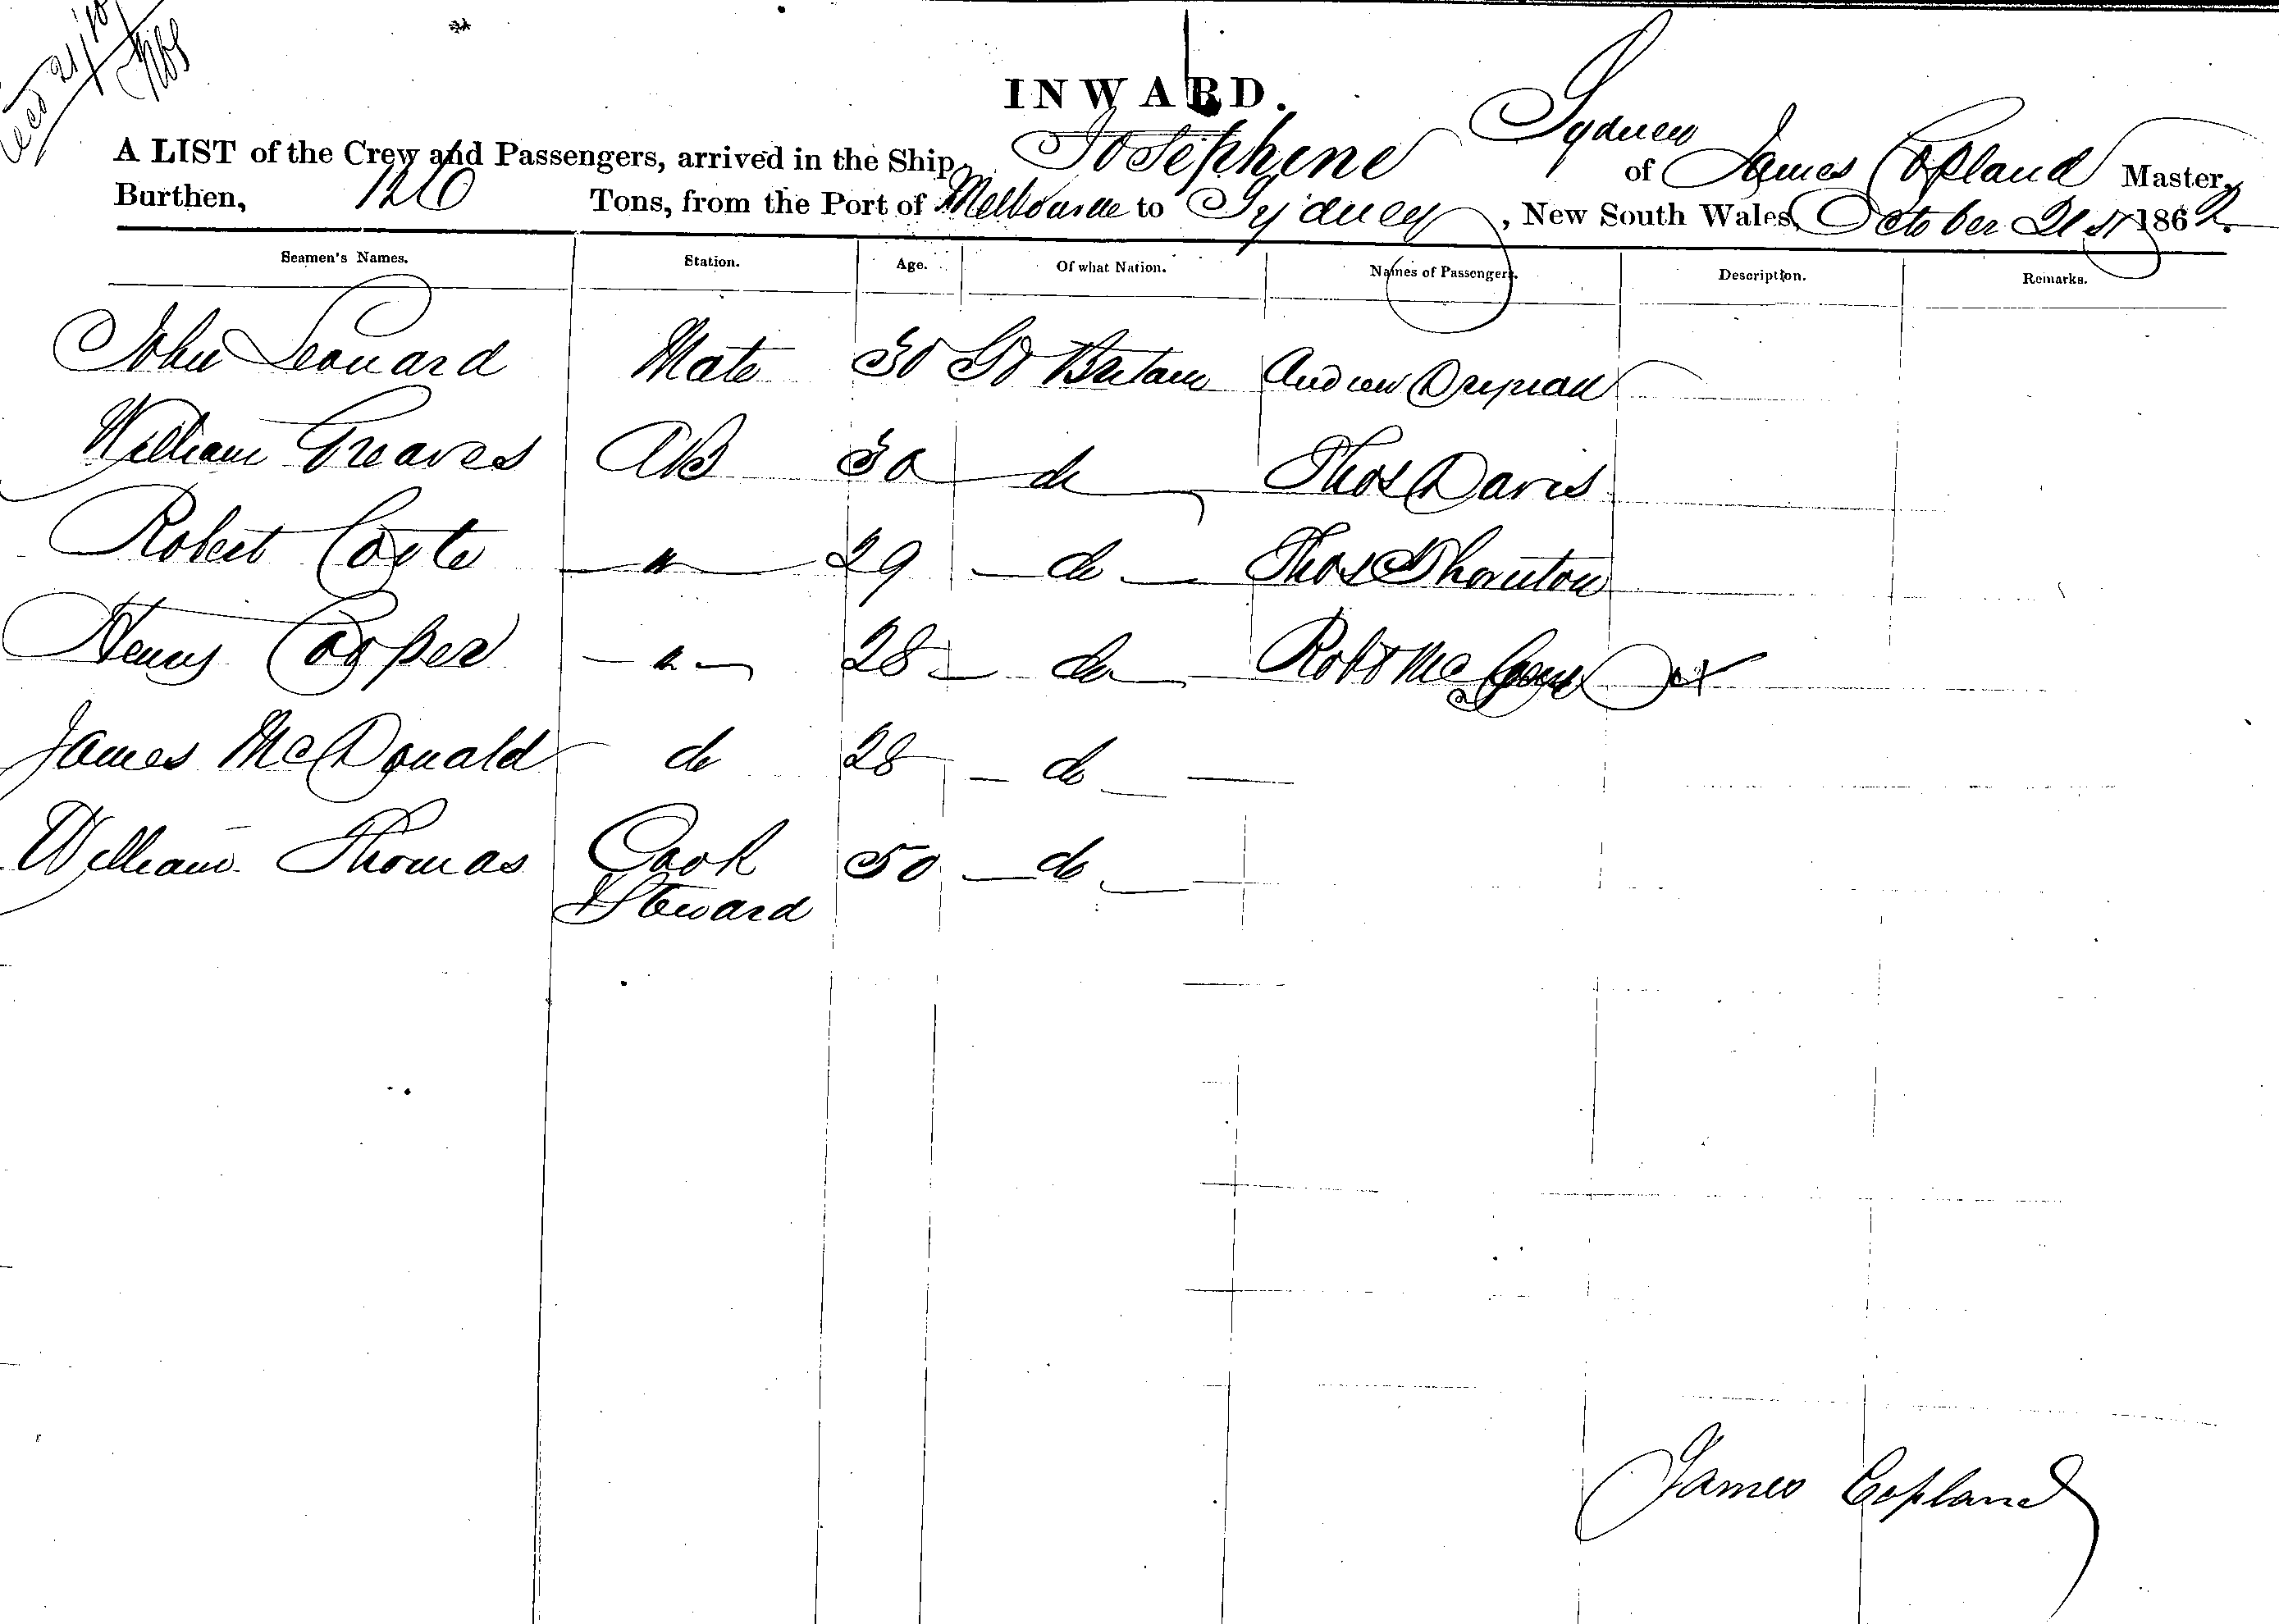 21/10
INWARD.
A LIST of the Crew and Passengers, arrived in the Ship, Josephine of Sydney James Copland Master,
Burthen, 120 Tons, from the Port of Melbourne to Sydney, New South Wales, October 21st 1862.
Seamen's Names. Station. Age. Of what Nation. Names of Passengers. Description. Remarks.
John Leonard Mate 30 Gt Britain Andrew
William Greaves AB 30 do Thos Davis
Robert — " — 29 — do — Thos Thornton
Henry Cooper — " — 28 — do — Robt Mc
James McDonald do 28 — do —
William Thomas Cook 50 — do —
& Steward
James Copland